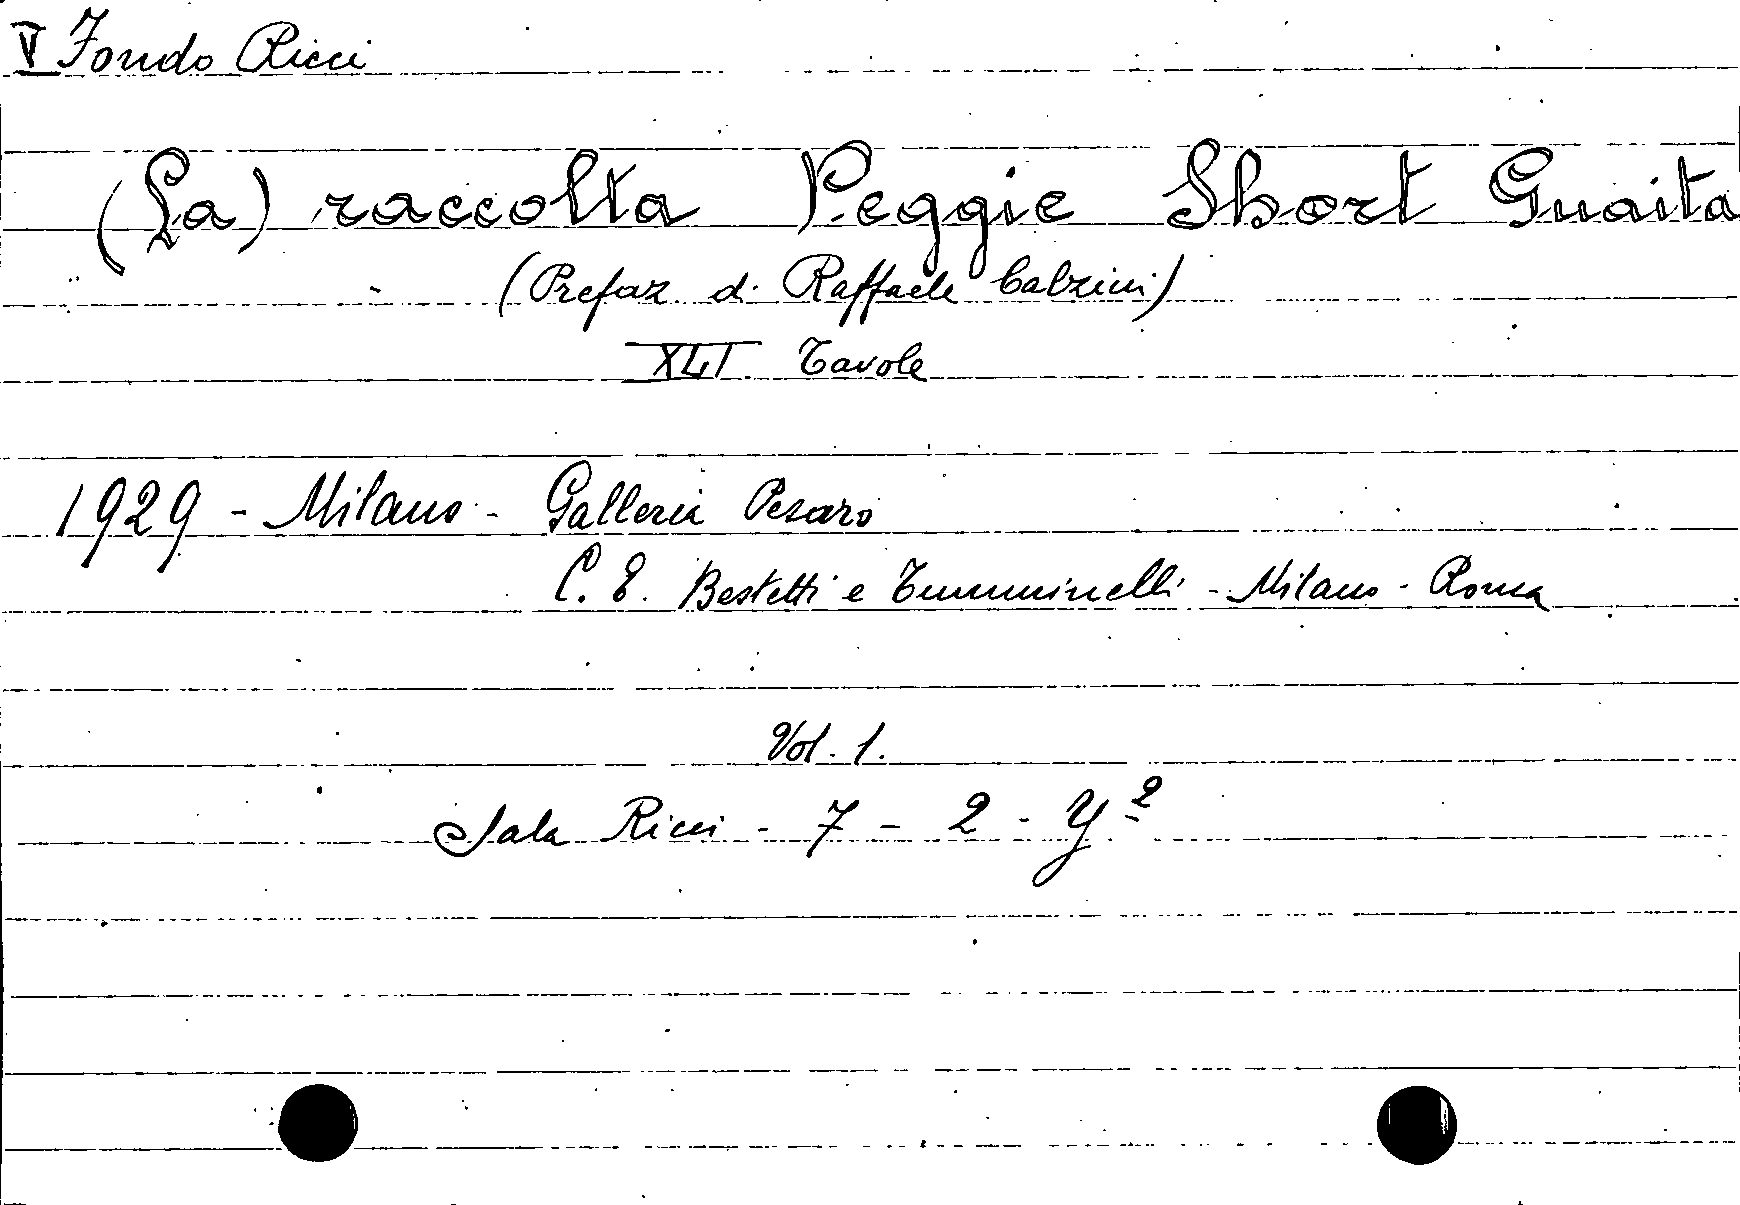 V Fondo Ricci
(La) raccolta Peggie Short Guaita
(Prefaz. d. Raffaele Calzini)
XLI Tavole
1929 - Milano - Galleria Pesaro
C. E. Bestetti e Tumminelli - Milano - Roma
Vol. 1.
Sala Ricci - 7 - 2 - Y²